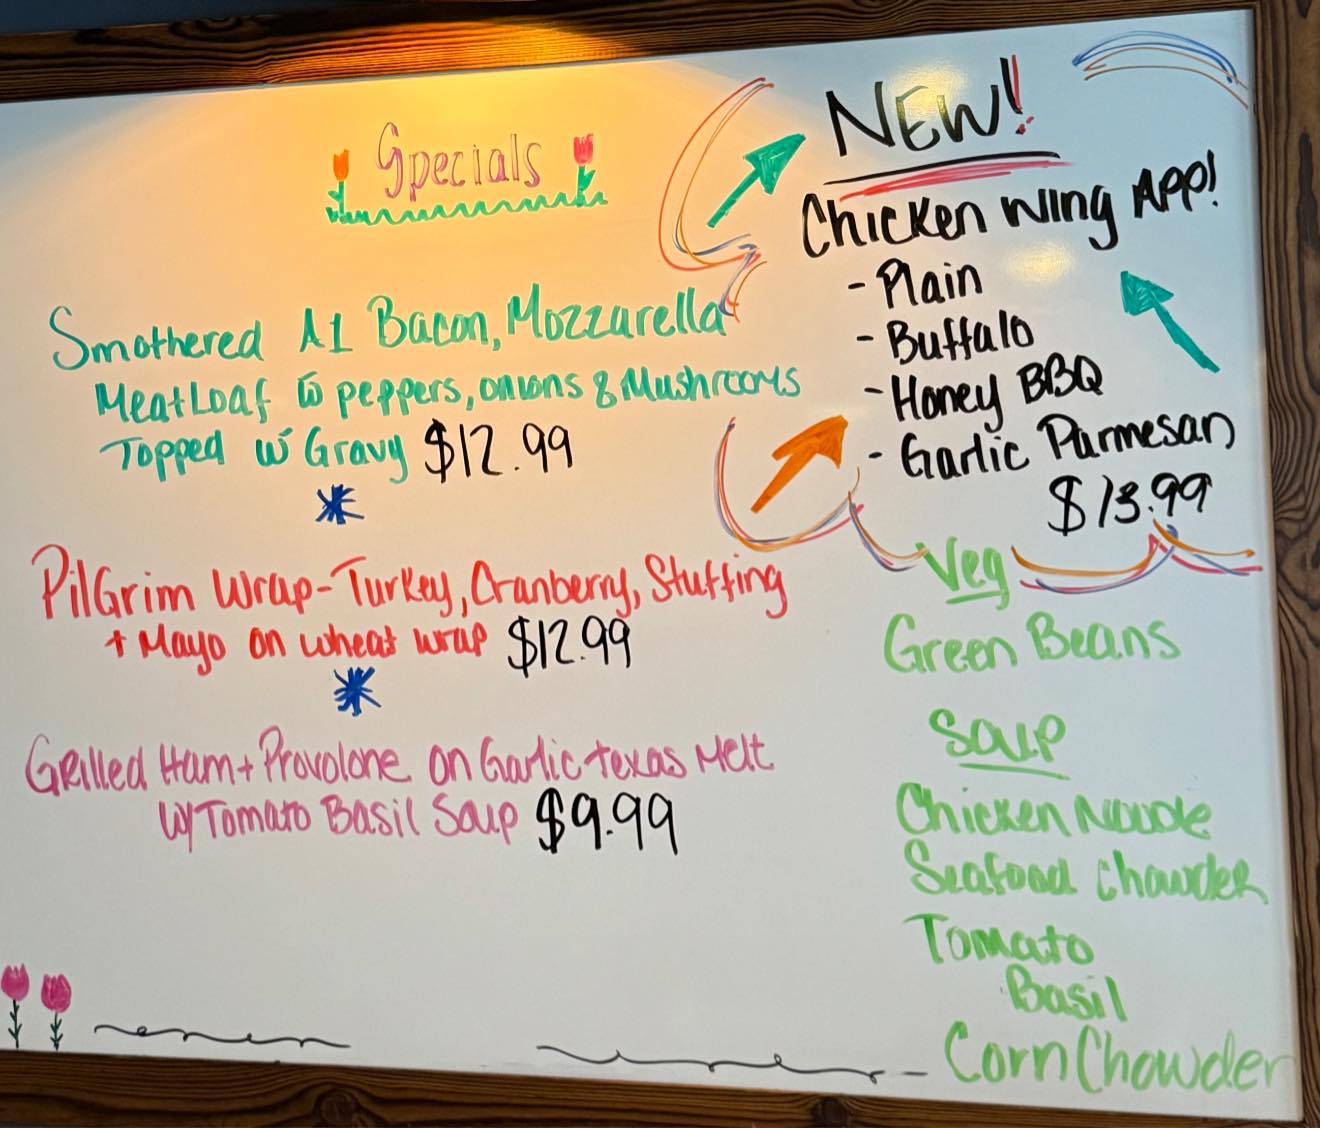 Specials
Smothered A1 Bacon, Mozzarella
Meatloaf w peppers, onions & Mushrooms
Topped w Gravy $12.99
PilGrim Wrap-Turkey, Cranberry, Stuffing
+ Mayo on wheat wrap $12.99
Grilled Ham + Provolone on Garlic Texas Melt
w/Tomato Basil Soup $9.99
NEW!
Chicken Wing APP!
- Plain
- Buffalo
- Honey BBQ
- Garlic Parmesan
$13.99
Veg
Green Beans
Soup
Chicken Noodle
Seafood Chowder
Tomato
Basil
Corn Chowder